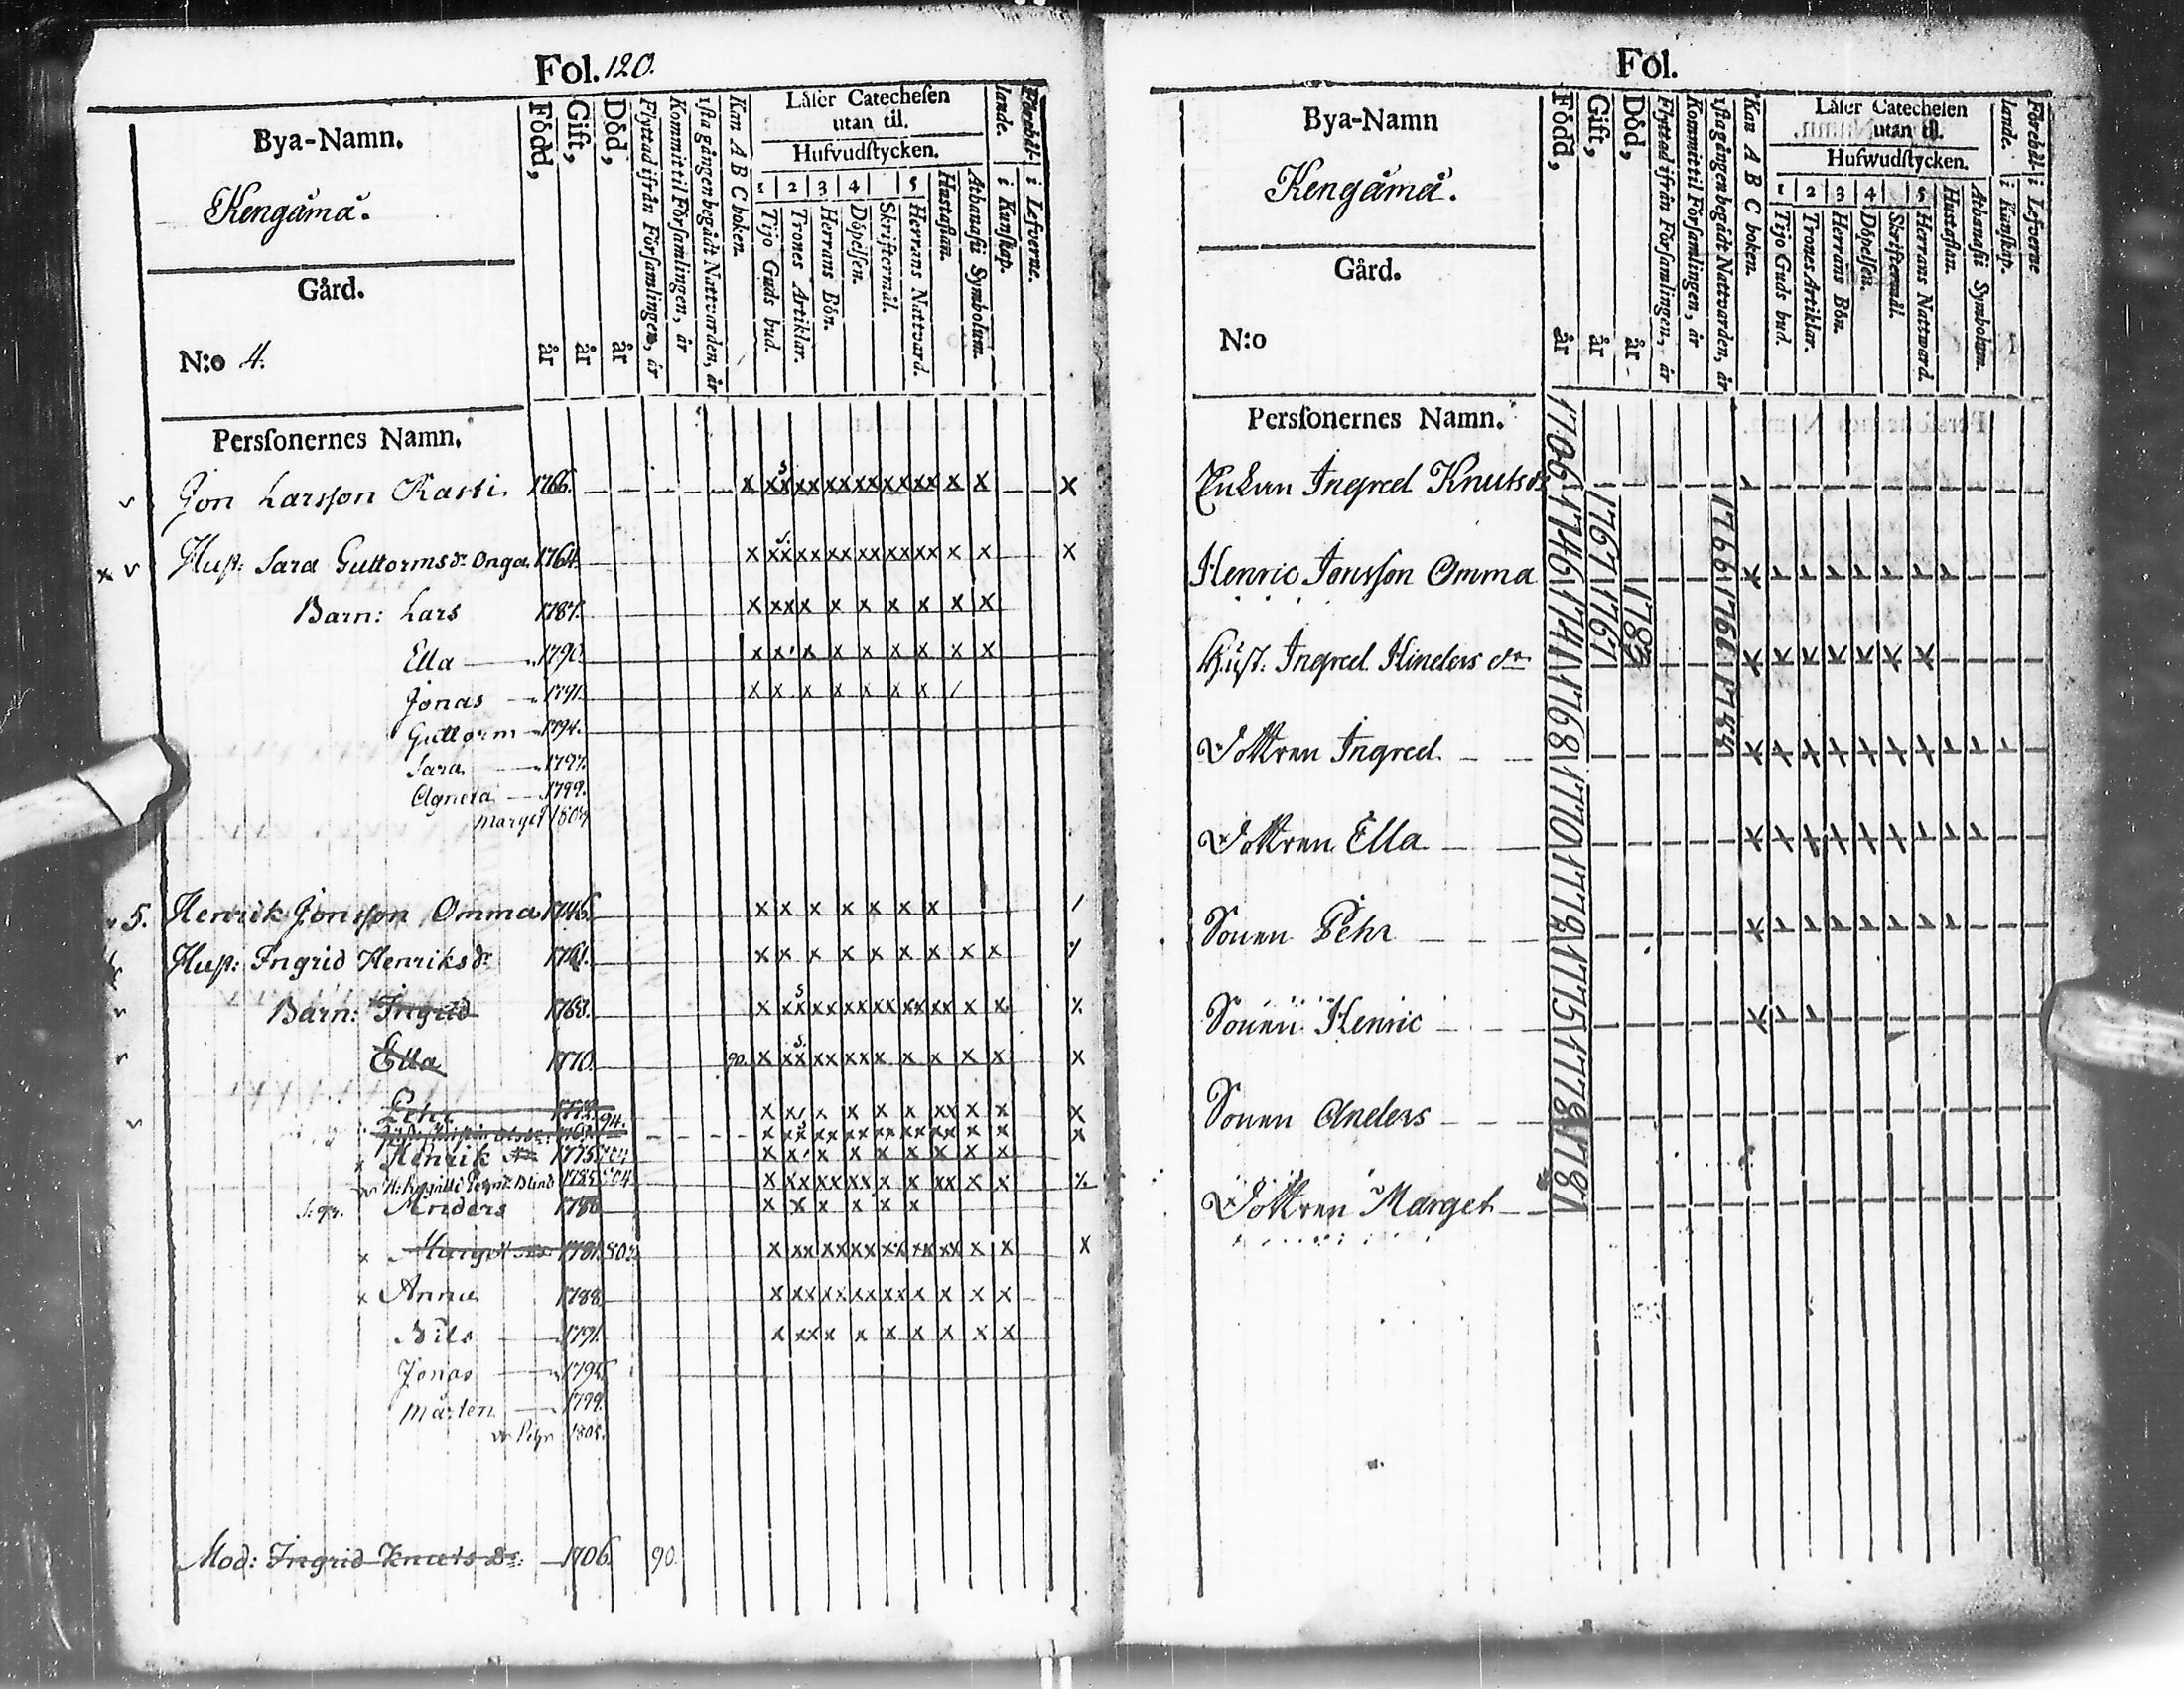 Fol. 120.
Bya-Namn.
Kengämä.
Gård.
N:o 4.
Född, år
Gift, år
Död, år
Flyttad ifrån Församlingen, år
Kommit til Församlingen, år
1sta gången begådt Nattvarden, år
Kan A B C boken.
Läser Catechesen
utan til.
Hufvudstycken.
1 2 3 4 5
Tijo Guds bud.
Trones Artiklar.
Herrans Bön.
Döpelsen.
Skriftermål.
Herrans Nattvard.
Hustaflan.
Athanasii Symbolum.
Förehållande.
i Kunskap.
i Lefverne.
Personernes Namn.
Jon Larsson Rasti 1766.
Hust: Sara Guttormsdr Onga 1764.
Barn: Lars 1787.
Ella 1790.
Jonas 1791.
Guttorm 1794.
Sara 1797.
Agneta 1799.
Marget 1804
5. Henrik Jonsson Omma 1746.
Hust: Ingrid Henriksdr 1741.
Barn: Ingrid 1768.
Ella 1770. 90.
Pehr 1772. 94.
Henrik 1775
Anders 1780
Marget 1781.
Anna 1788
Nils 1791.
Jonas 1795
Mårten 1799.
Pehr 1805.
Mod: Ingrid Knutsdr: 1706. 90.
Fol.
Bya-Namn
Kengämä.
Gård.
N:o
Född, år
Gift, år
Död, år
Flyttad ifrån Församlingen, år
Kommit til Församlingen, år
1sta gången begådt Nattvarden, år
Kan A B C boken.
Läser Catechesen
utan til.
Hufwudstycken.
1 2 3 4 5
Tijo Guds bud.
Trones Artiklar.
Herrans Bön.
Döpelsen.
Skriftermål.
Herrans Nattward.
Hustaflan.
Athanasii Symbolum.
Förehållande.
i Kunskap.
i Lefverne
Personernes Namn.
Enkan Ingred Knutsdr 1706
Henric Jonsson Omma 1746 1767 1766
Hust. Ingred Hindersdr 1741 1767 1783 1766
Dottren Ingred 1768
Dottren Ella 1770
Sonen Pehr 1772
Sonen Henric 1775
Sonen Anders 1778
Dottren Marget 1781